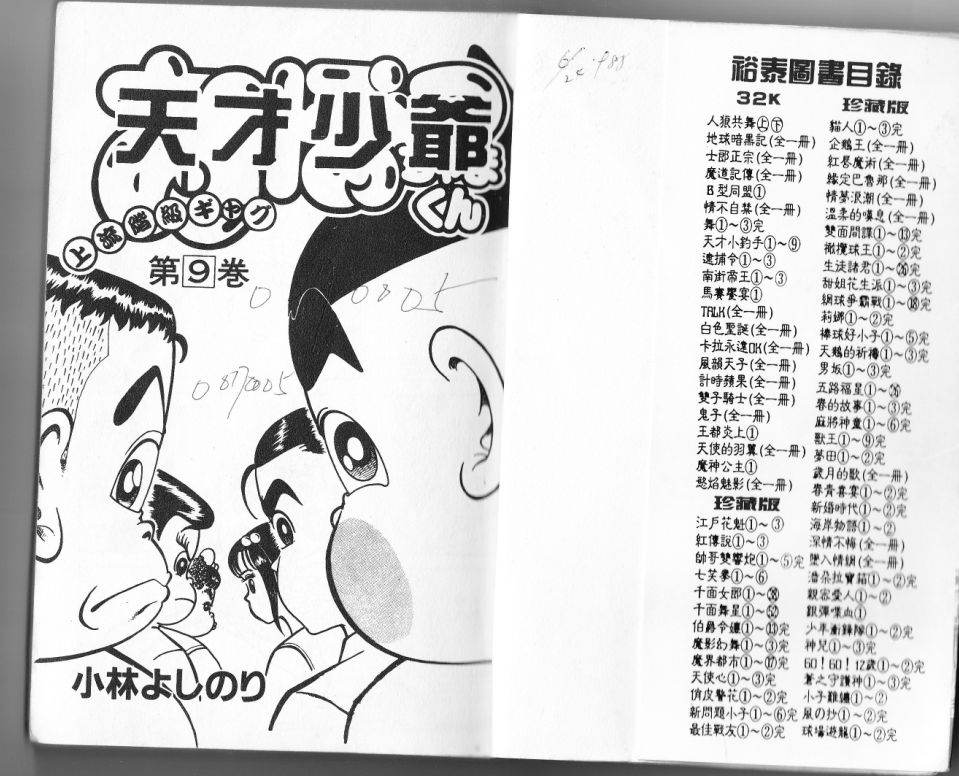 天才少爺
くん
上流階級ギャグ
第9巻
0 0 0805
小林よしのり
6/24 '988
裕泰圖書目錄
32K
人狼共舞㊤㊦
地球暗黑記(全一冊)
士郎正宗(全一冊)
魔道記傳(全一冊)
B型同盟①
情不自禁(全一冊)
舞①～③完
天才小釣手①～⑨
逮捕令①～③
南街帝王①～③
馬賽饗宴①
TALK(全一冊)
白色聖誕(全一冊)
卡拉永遠OK(全一冊)
風韻天子(全一冊)
計時蘋果(全一冊)
雙子騎士(全一冊)
鬼子(全一冊)
王都炎上①
天使的羽翼(全一冊)
魔神公主①
慾焰魅影(全一冊)
珍藏版
江戶花魁①～③
紅傳說①～③
帥哥雙響炮①～⑤完
七笑拳①～⑥
千面女郎①～㊳
千面舞星①～
伯爵令孃①～⑬完
魔影幻舞①～③完
魔界都市①～⑰完
天使心①～③完
俏皮警花①～②完
新問題小子①～⑥完
最佳戰友①～②完
珍藏版
貓人①～③完
企鵝王(全一冊)
紅唇魔術(全一冊)
緣定巴魯那(全一冊)
情夢浪潮(全一冊)
溫柔的嘆息(全一冊)
雙面間諜①～⑬完
橄欖球王①～②完
生徒諸君①～㉖完
甜姐花生派①～③完
網球爭霸戰①～⑱完
莉娜①～②完
棒球好小子①～⑤完
天鵝的祈禱①～③完
男坂①～③完
五路福星①～㉖
春的故事①～③完
麻將神童①～⑥完
獸王①～⑨完
夢田①～②完
歲月的歌(全一冊)
春青喜宴①～②完
新婚時代①～②完
海岸物語①～②
深情不悔(全一冊)
墜入情網(全一冊)
潘朵拉寶箱①～②完
親密愛人①～②
銀彈喋血①
少年衝鋒隊①～②完
神兒①～③完
60!60!12歲①～②完
蒼之守護神①～③完
小子難纏①～②
風の抄①～②完
球場遊龍①～②完